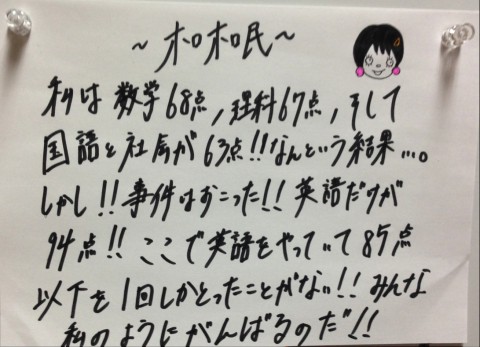 私は数学68点,理科67点,そして
国語と社会が63点!!なんという結果…。
しかし!!事件はおこった!!英語だけが
94点!!ここで英語をやっていて85点
以下を1回しかとったことがない!!みんな
私のようにがんばるのだ!!